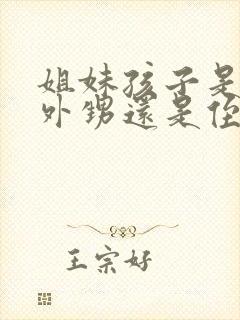 姐妹孩子是
外甥還是侄
王宗好